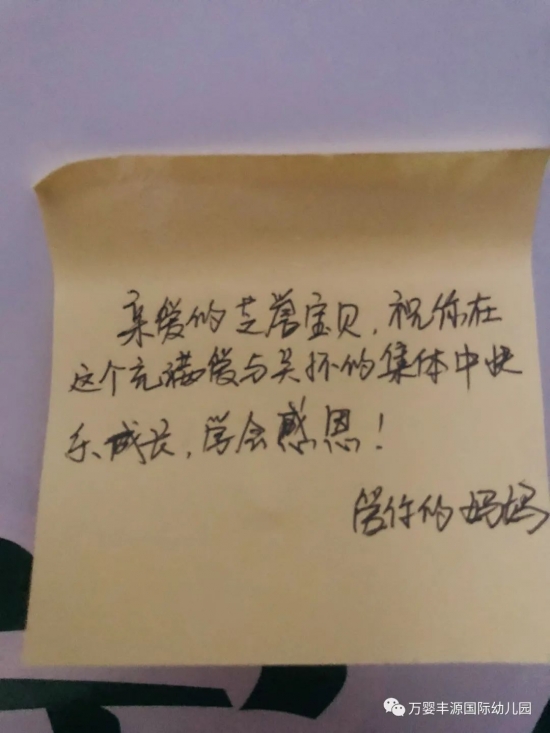 亲爱的芝蔓宝贝，祝你在
这个充满爱与关怀的集体中快
乐成长，学会感恩！
爱你的妈妈
万婴丰源国际幼儿园